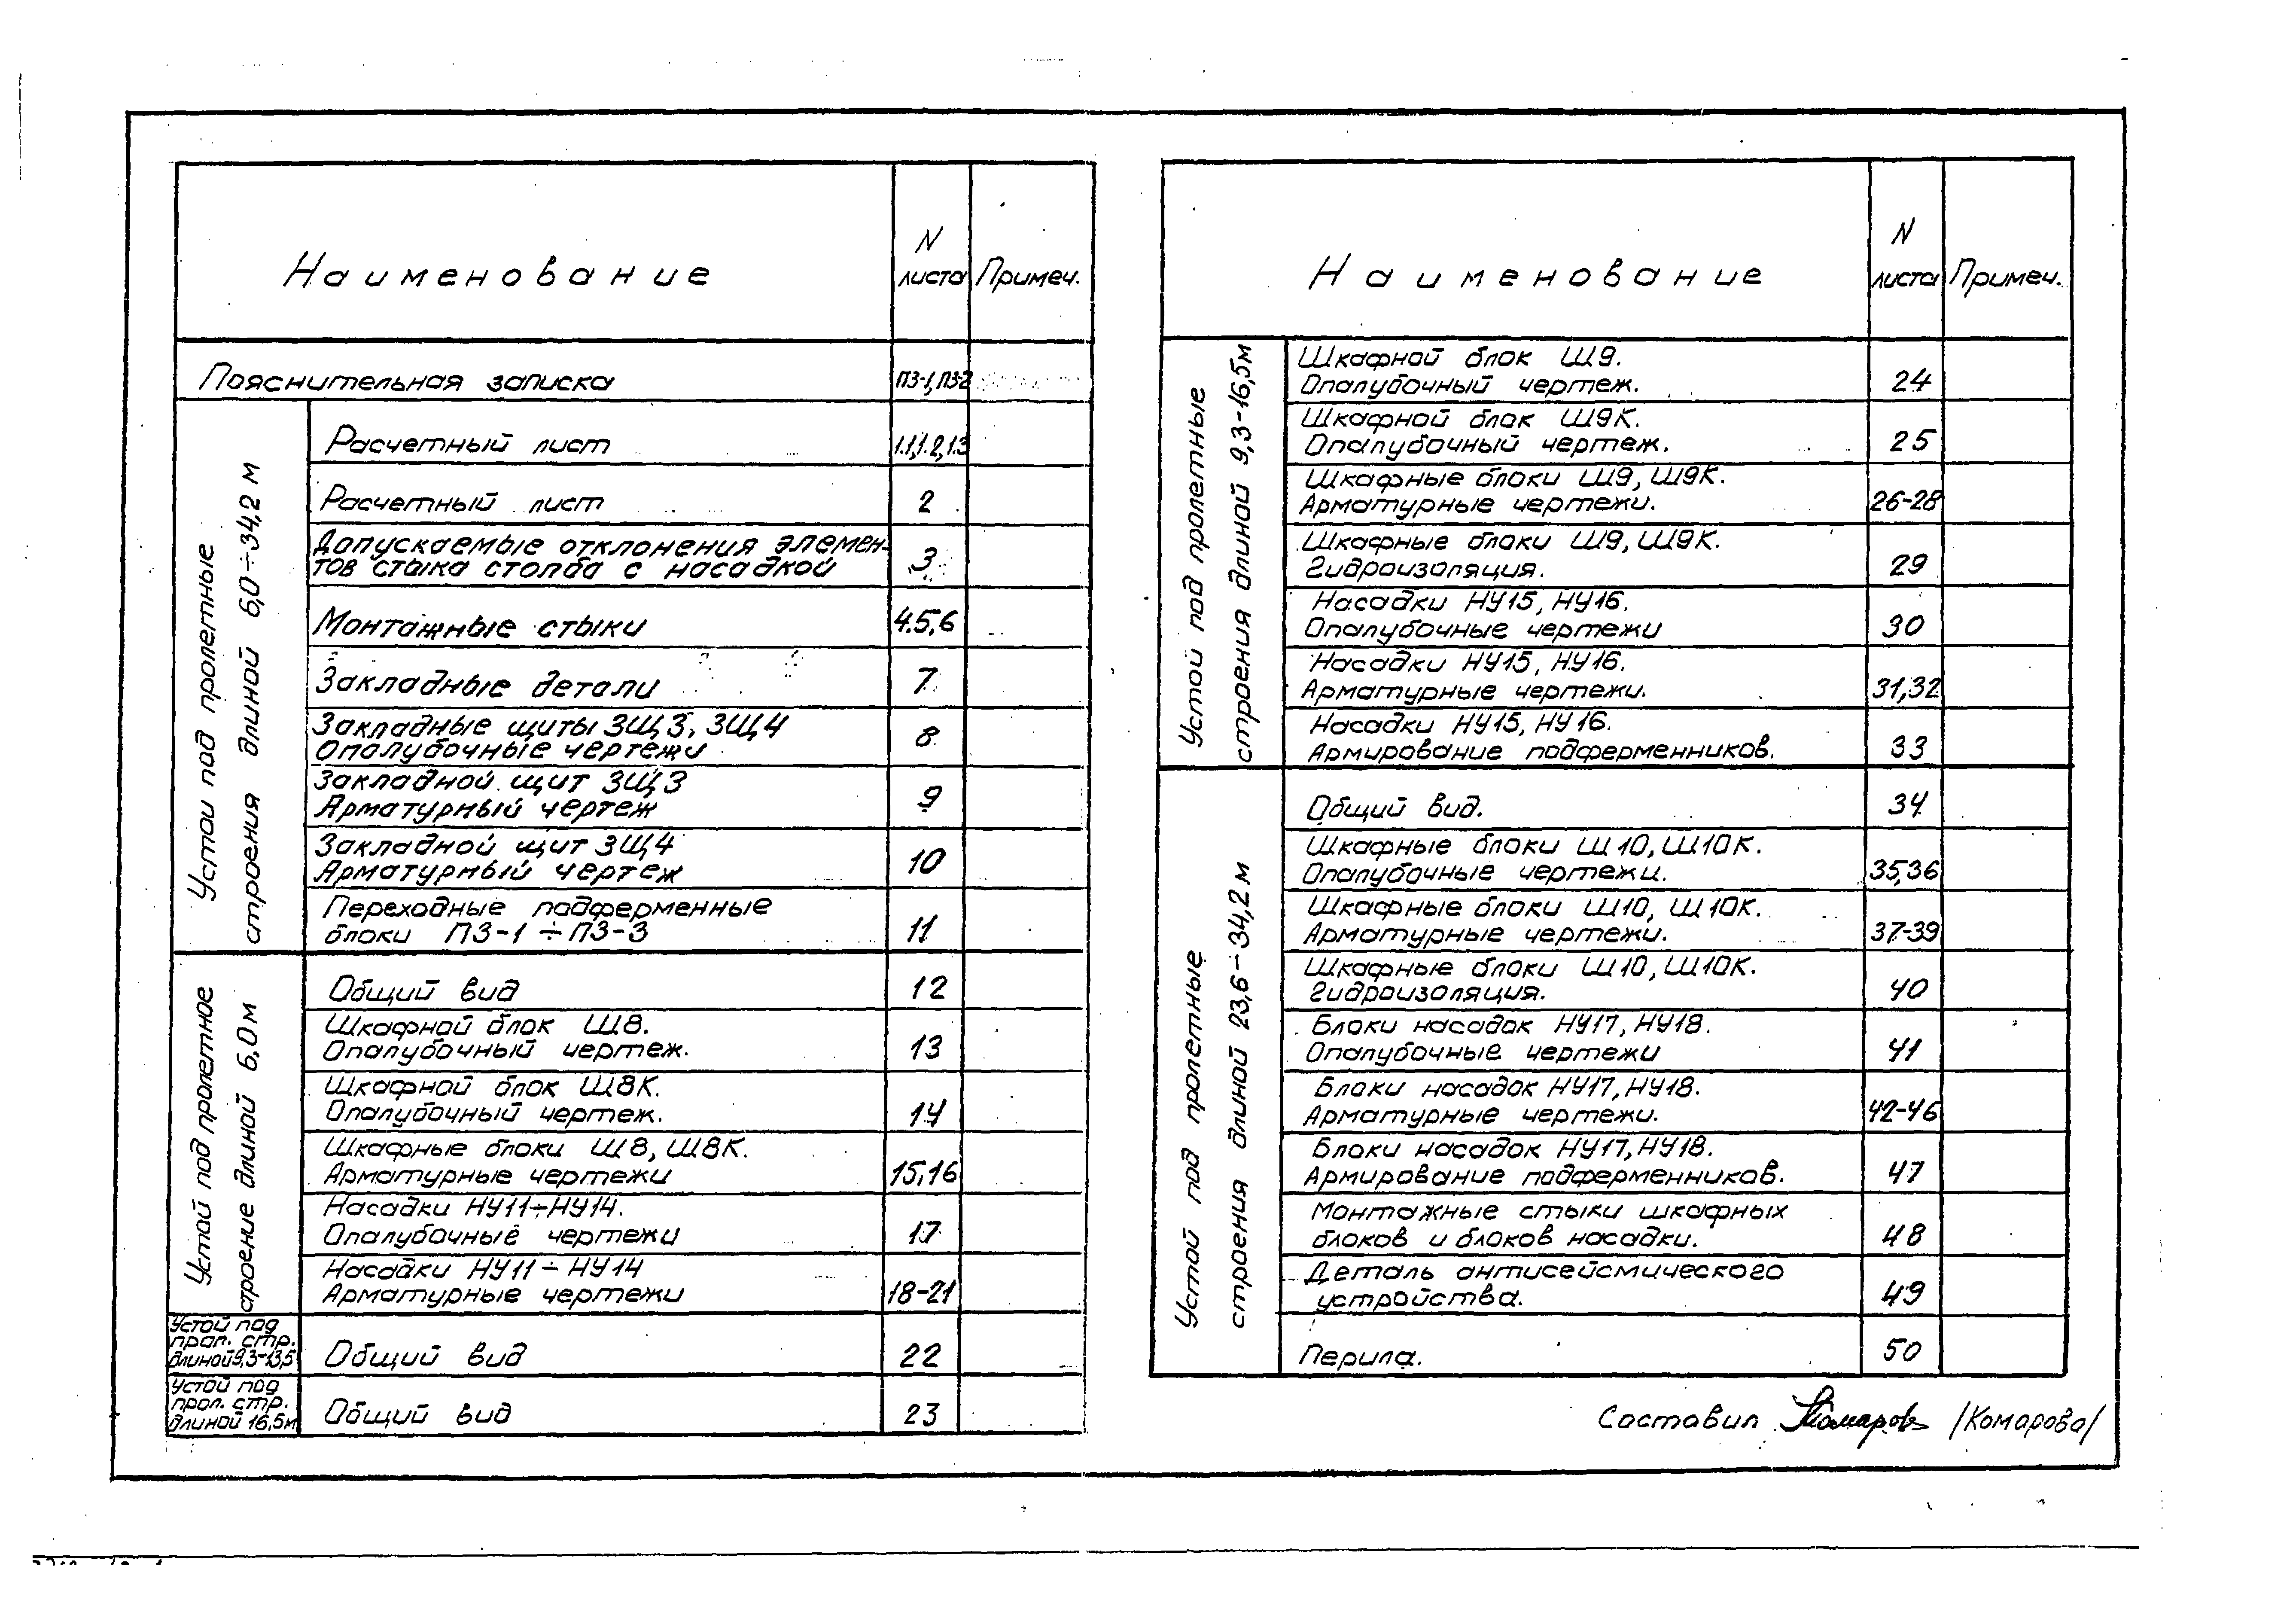 Наименование
N листа
Примеч.
Пояснительная записка
ПЗ-1, ПЗ-2
Устои под пролетные
строения длиной 6,0÷34,2 м
Расчетный лист
1.1, 1.2, 1.3
Расчетный лист
2
Допускаемые отклонения элемен-
тов стыка столба с насадкой
3
Монтажные стыки
4.5,6
Закладные детали
7
Закладные щиты ЗЩ3, ЗЩ4
Опалубочные чертежи
8
Закладной щит ЗЩ3
Арматурный чертеж
9
Закладной щит ЗЩ4
Арматурный чертеж
10
Переходные подферменные
блоки ПЗ-1÷ПЗ-3
11
Устой под пролетное
строение длиной 6,0м
Общий вид
12
Шкафной блок Ш8.
Опалубочный чертеж.
13
Шкафной блок Ш8К.
Опалубочный чертеж.
14
Шкафные блоки Ш8, Ш8К.
Арматурные чертежи
15,16
Насадки НУ11÷НУ14.
Опалубочные чертежи
17
Насадки НУ11÷НУ14
Арматурные чертежи
18-21
Устой под
прол. стр.
длиной 9,3-13,5
Общий вид
22
Устой под
прол. стр.
длиной 16,5м
Общий вид
23
Наименование
N листа
Примеч.
Устой под пролетные
строения длиной 9,3-16,5м
Шкафной блок Ш9.
Опалубочный чертеж.
24
Шкафной блок Ш9К.
Опалубочный чертеж.
25
Шкафные блоки Ш9, Ш9К.
Арматурные чертежи.
26-28
Шкафные блоки Ш9, Ш9К.
Гидроизоляция.
29
Насадки НУ15, НУ16.
Опалубочные чертежи
30
Насадки НУ15, НУ16.
Арматурные чертежи.
31,32
Насадки НУ15, НУ16.
Армирование подферменников.
33
Устой под пролетные
строения длиной 23,6-34,2 м
Общий вид.
34
Шкафные блоки Ш10, Ш10К.
Опалубочные чертежи.
35,36
Шкафные блоки Ш10, Ш10К.
Арматурные чертежи.
37-39
Шкафные блоки Ш10, Ш10К.
Гидроизоляция.
40
Блоки насадок НУ17, НУ18.
Опалубочные чертежи
41
Блоки насадок НУ17, НУ18.
Арматурные чертежи.
42-46
Блоки насадок НУ17, НУ18.
Армирование подферменников.
47
Монтажные стыки шкафных
блоков и блоков насадки.
48
Деталь антисейсмического
устройства.
49
Перила.
50
Составил Комарова /Комарова/